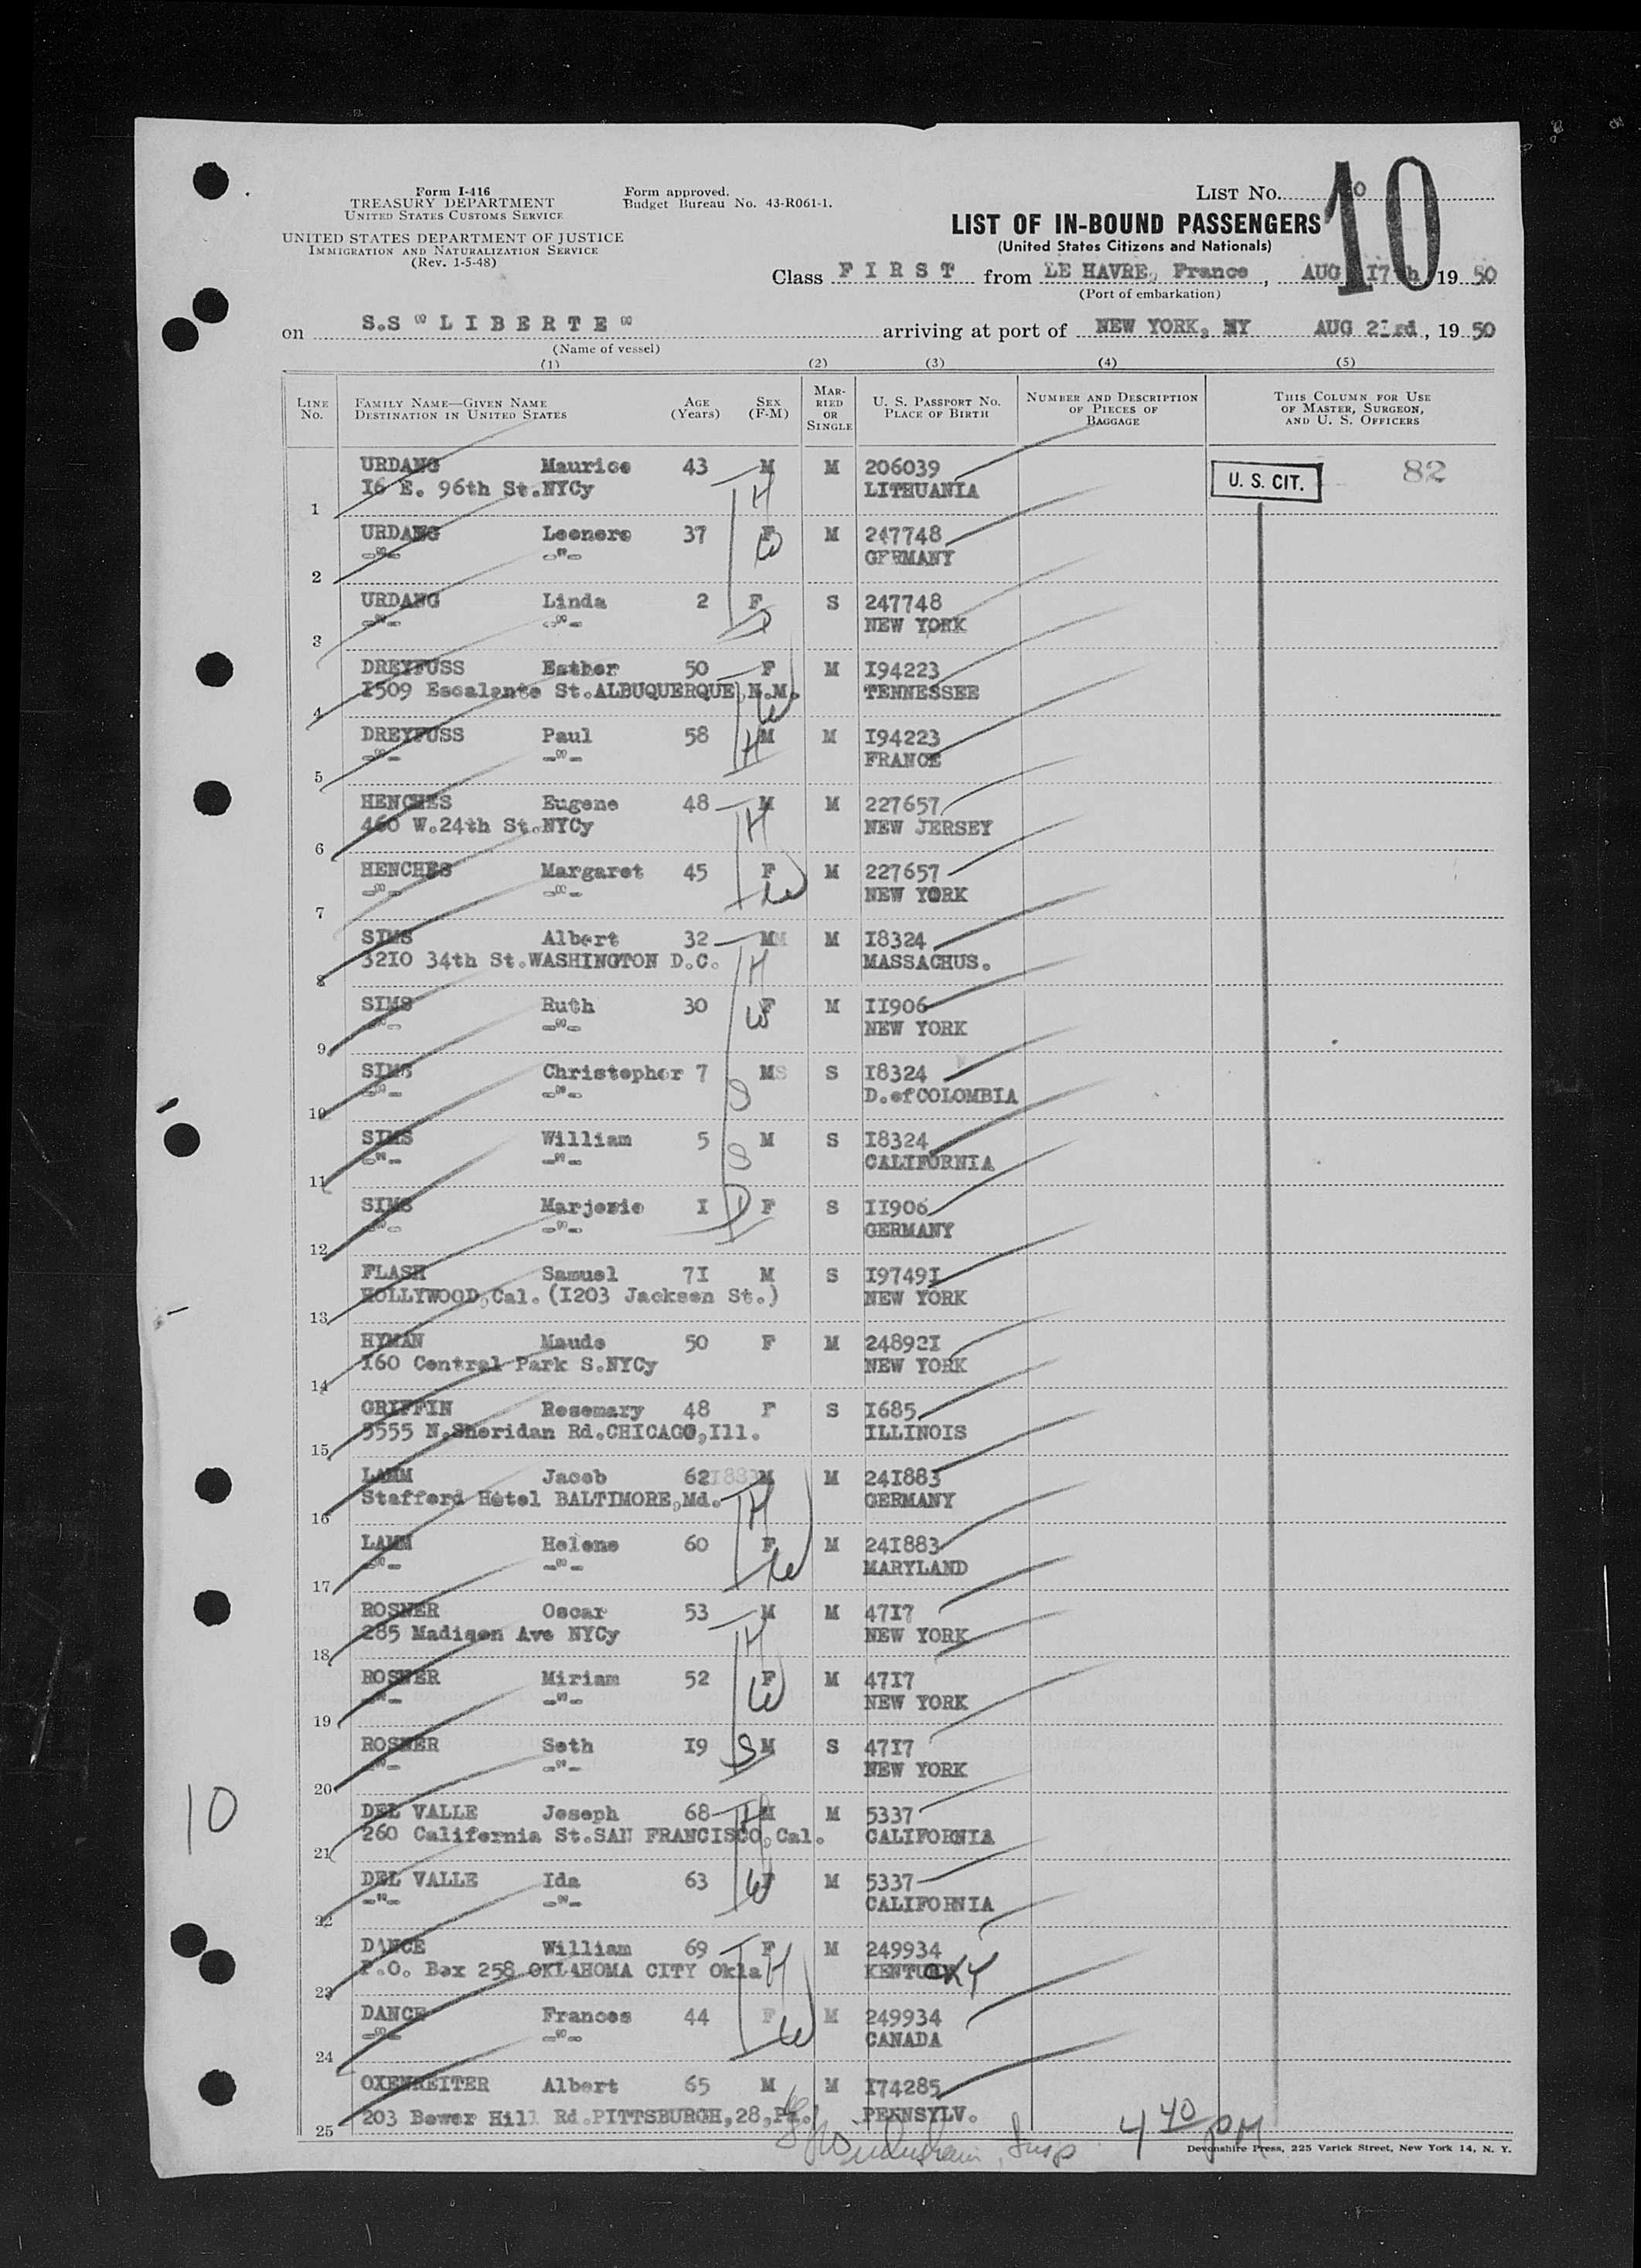 Form I-416
TREASURY DEPARTMENT
UNITED STATES CUSTOMS SERVICE
UNITED STATES DEPARTMENT OF JUSTICE
IMMIGRATION AND NATURALIZATION SERVICE
(Rev. 1-5-48)
Form approved.
Budget Bureau No. 43-R061-1.
LIST NO. 10
LIST OF IN-BOUND PASSENGERS
(United States Citizens and Nationals)
Class FIRST from LE HAVRE, France, AUG 17th 19 50
(Port of embarkation)
on S.S "LIBERTE" arriving at port of NEW YORK, NY AUG 23rd, 19 50
(Name of vessel)
(1) (2) (3) (4) (5)
LINE No. FAMILY NAME—GIVEN NAME DESTINATION IN UNITED STATES AGE (Years) SEX (F-M) MARRIED OR SINGLE U. S. PASSPORT NO. PLACE OF BIRTH NUMBER AND DESCRIPTION OF PIECES OF BAGGAGE THIS COLUMN FOR USE OF MASTER, SURGEON, AND U. S. OFFICERS
URDANG Maurice 43 M M 206039 U. S. CIT. 82
1 16 E. 96th St.NYCy H LITHUANIA
URDANG Leonore 37 F M 247748
2 -"- -"- W GERMANY
URDANG Linda 2 F S 247748
3 -"- -"- D NEW YORK
DREYFUSS Esther 50 F M I94223
4 I509 Escalante St.ALBUQUERQUE,N.M. W TENNESSEE
DREYFUSS Paul 58 M M I94223
5 -"- -"- H FRANCE
HENCHES Eugene 48 M M 227657
6 460 W.24th St.NYCy H NEW JERSEY
HENCHES Margaret 45 F M 227657
7 -"- -"- W NEW YORK
SIMS Albert 32 M M I8324
8 32I0 34th St.WASHINGTON D.C. H MASSACHUS.
SIMS Ruth 30 F M II906
9 -"- -"- W NEW YORK
SIMS Christopher 7 M S I8324
10 -"- -"- S D.ofCOLOMBIA
SIMS William 5 M S I8324
11 -"- -"- S CALIFORNIA
SIMS Marjorie I D F S II906
12 -"- -"- GERMANY
FLASH Samuel 7I M S I9749I
13 HOLLYWOOD,Cal. (I203 Jackson St.) NEW YORK
HYMAN Maude 50 F M 24892I
14 I60 Central Park S.NYCy NEW YORK
GRIFFIN Rosemary 48 F S I685
15 5555 N.Sheridan Rd.CHICAGO,Ill. ILLINOIS
LAMM Jacob 62 M M 24I883
16 Stafford Hotel BALTIMORE,Md. H GERMANY
LAMM Helene 60 F M 24I883
17 -"- -"- W MARYLAND
ROSNER Oscar 53 M M 47I7
18 285 Madison Ave NYCy H NEW YORK
ROSNER Miriam 52 F M 47I7
19 -"- -"- W NEW YORK
ROSNER Seth I9 S M S 47I7
20 -"- -"- NEW YORK
DEL VALLE Joseph 68 H M M 5337
21 260 California St.SAN FRANCISCO,Cal. CALIFORNIA
DEL VALLE Ida 63 W F M 5337
22 -"- -"- CALIFORNIA
DANCE William 69 F M 249934
23 P.O. Box 258 OKLAHOMA CITY Okla H KENTUCKY
DANCE Frances 44 F M 249934
24 -"- -"- W CANADA
OXENREITER Albert 65 M M I74285
25 203 Bower Hill Rd.PITTSBURGH,28,Pa. PENNSYLV.
10
Insp 4 40 PM
Devonshire Press, 225 Varick Street, New York 14, N. Y.